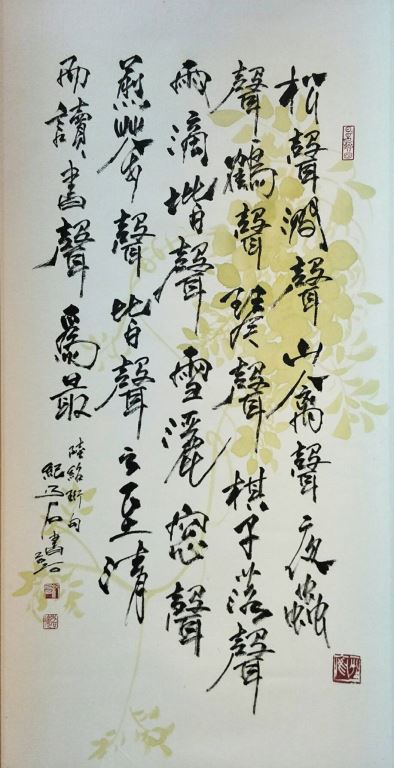 松聲澗聲山禽聲夜蟲
聲鶴聲琴聲棋子落聲
雨滴堦聲雪灑窗聲
煎茶聲皆聲之至清
而讀書聲為最
陸紹珩句